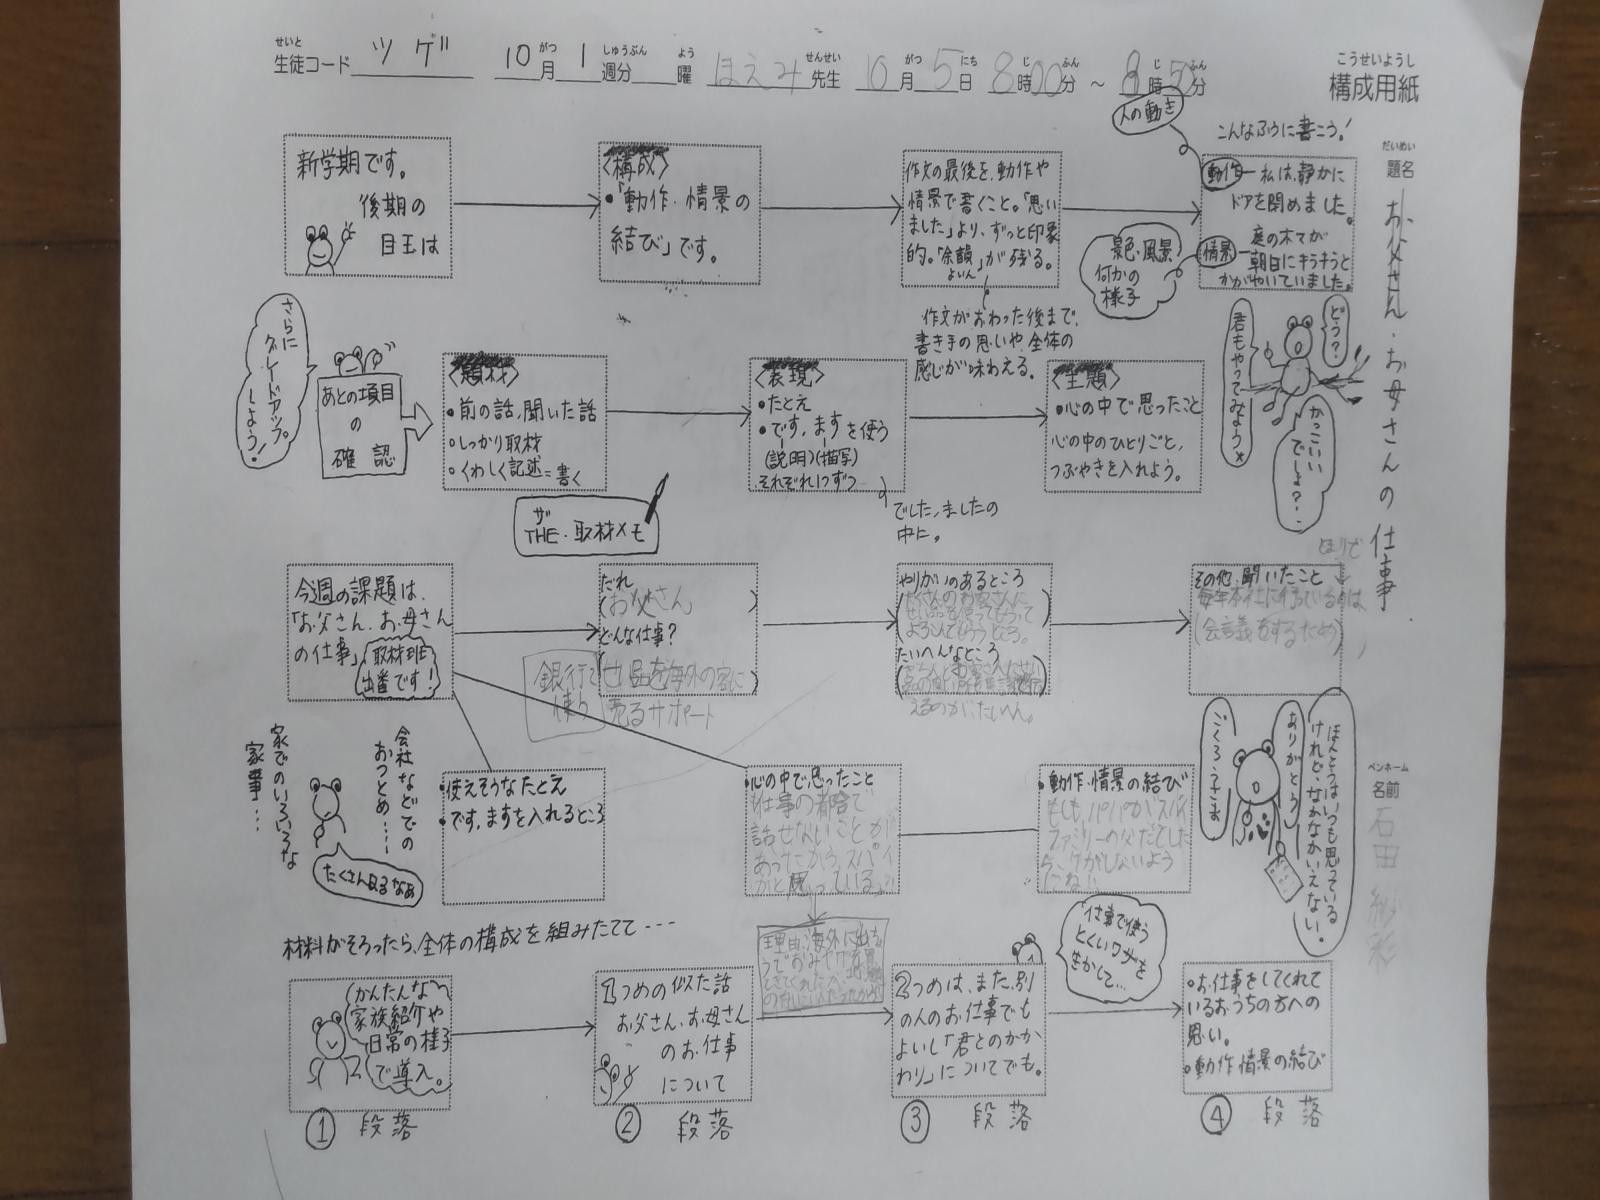 せいと
生徒コード ツゲ 10月 1週分 曜 ほえみ先生 10月5日 8時00分 ～ 8時50分
がつ しゅうぶん よう せんせい がつ にち じ ふん じ ふん
こうせいようし
構成用紙
だいめい
題名
お父さん・お母さんの仕事
ペンネーム
名前
石田 紗彩
新学期です。
後期の
目玉は
〈構成〉
・「動作・情景の
結び」です。
作文の最後を、動作や
情景で書くこと。「思い
ました」より、ずっと印象
的。「余韻」が残る。
よいん
作文がおわった後まで、
書き手の思いや、全体の
感じが味わえる。
人の動き
こんなふうに書こう!
動作 私は、静かに
ドアを閉めました。
情景 庭の木てが
朝日にキラキラと
かがやいていました。
景色・風景
何かの
様子
どう?
君もやってみなよ
かっこいい
でしょ?
さらに
グレードアップ
しよう!
あとの項目
の
確認
〈題材〉
・前の話、聞いた話
・しっかり取材
・くわしく記述=書く
ザ
THE・取材メモ
〈表現〉
・たとえ
・です、ますを使う
(説明)(描写)
それぞれ1つずつ
でした、ましたの
中に。
〈主題〉
・心の中で思ったこと
心の中のひとりごと、
つぶやきを入れよう。
今週の課題は、
「お父さん、お母さん
の仕事」
取材班
出番です!
だれ
(お父さん)
どんな仕事?
銀行で
使う
製品を海外の客に
売るサポート
やりがいのあるところ
よろこんでもらうところ。
たいへんなところ
えるのが、たいへん。
その他、聞いたこと
毎年本社に行っているのは、
(会議をするため)
会社などでの
おつとめ…
家でのいろいろな
家事…
たくさんあるなあ
・使えそうなたとえ
・です、ますを入れるところ
・心の中で、思ったこと
仕事の都合で
話せないことが
あったから、スパイ
かと思っている。
・動作・情景の結び
もしも、パパがスパイ
ファミリーの父だとした
ら、ケガしないよう
だね!!
ごくろうさま
ありがとう
ほんとうはいつも思っている
けれど、なかなかいえない。
材料がそろったら、全体の構成を組みたてて…
かんたんな
家族紹介や
日常の様子
で導入。
① 段落
1つめの似た話
お父さん、お母さん
のお仕事
について
② 段落
2つめは、また、別
の人のお仕事でも
よいし「君とのかか
わり」についてでも。
③ 段落
仕事で使う
とくいワザを
生かして…
・お仕事をしてくれて
いるおうちの方への
思い。
・動作・情景の結び
④ 段落